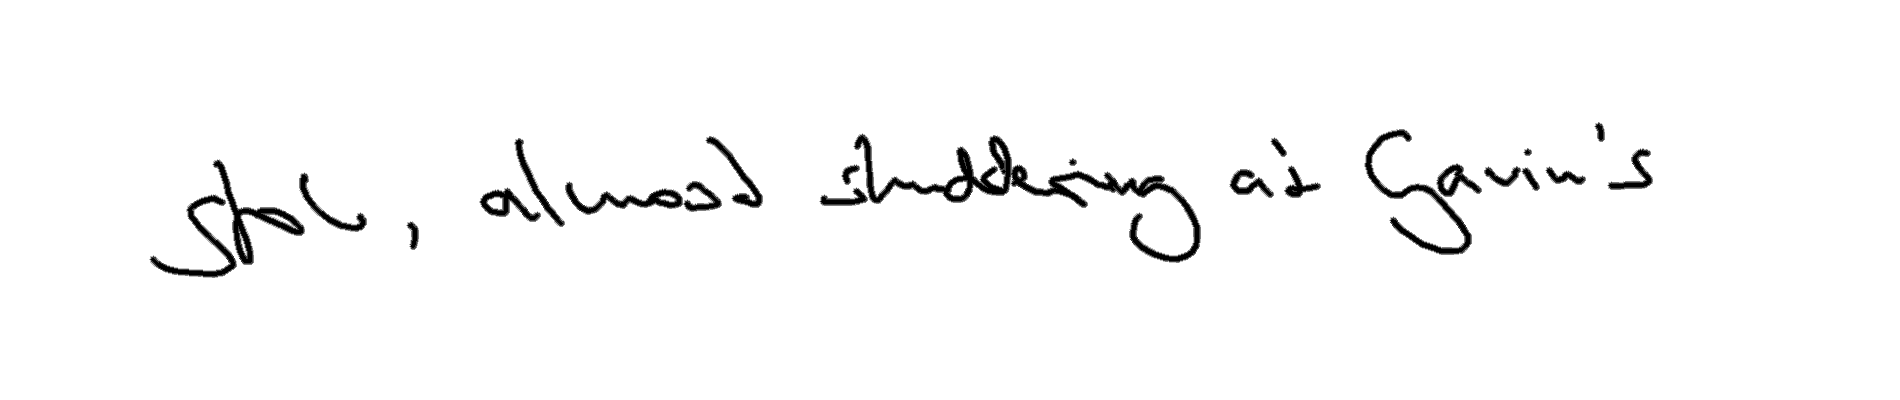 , almost shuddering at Gavin's